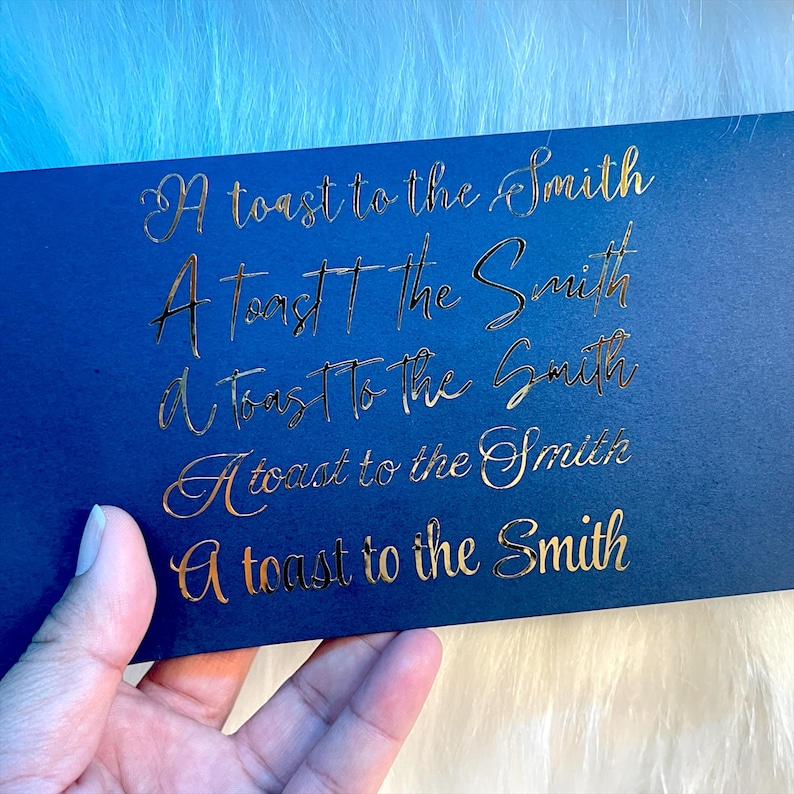 A toast to the Smith
A toast T the Smith
A toast to the Smith
A toast to the Smith
A toast to the Smith